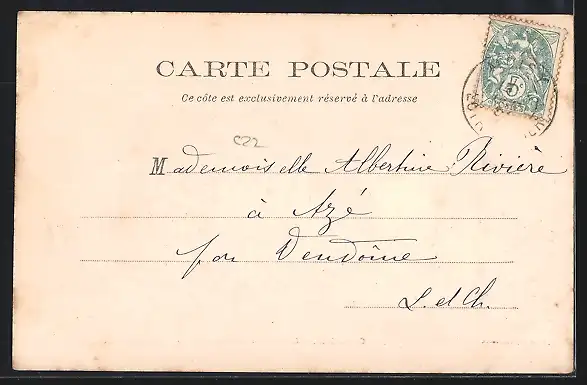 CARTE POSTALE
Ce côte est exclusivement réservé à l'adresse
5
C22
Mademoiselle Albertine Rivière
à Azé
par Vendôme
L. et Ch.